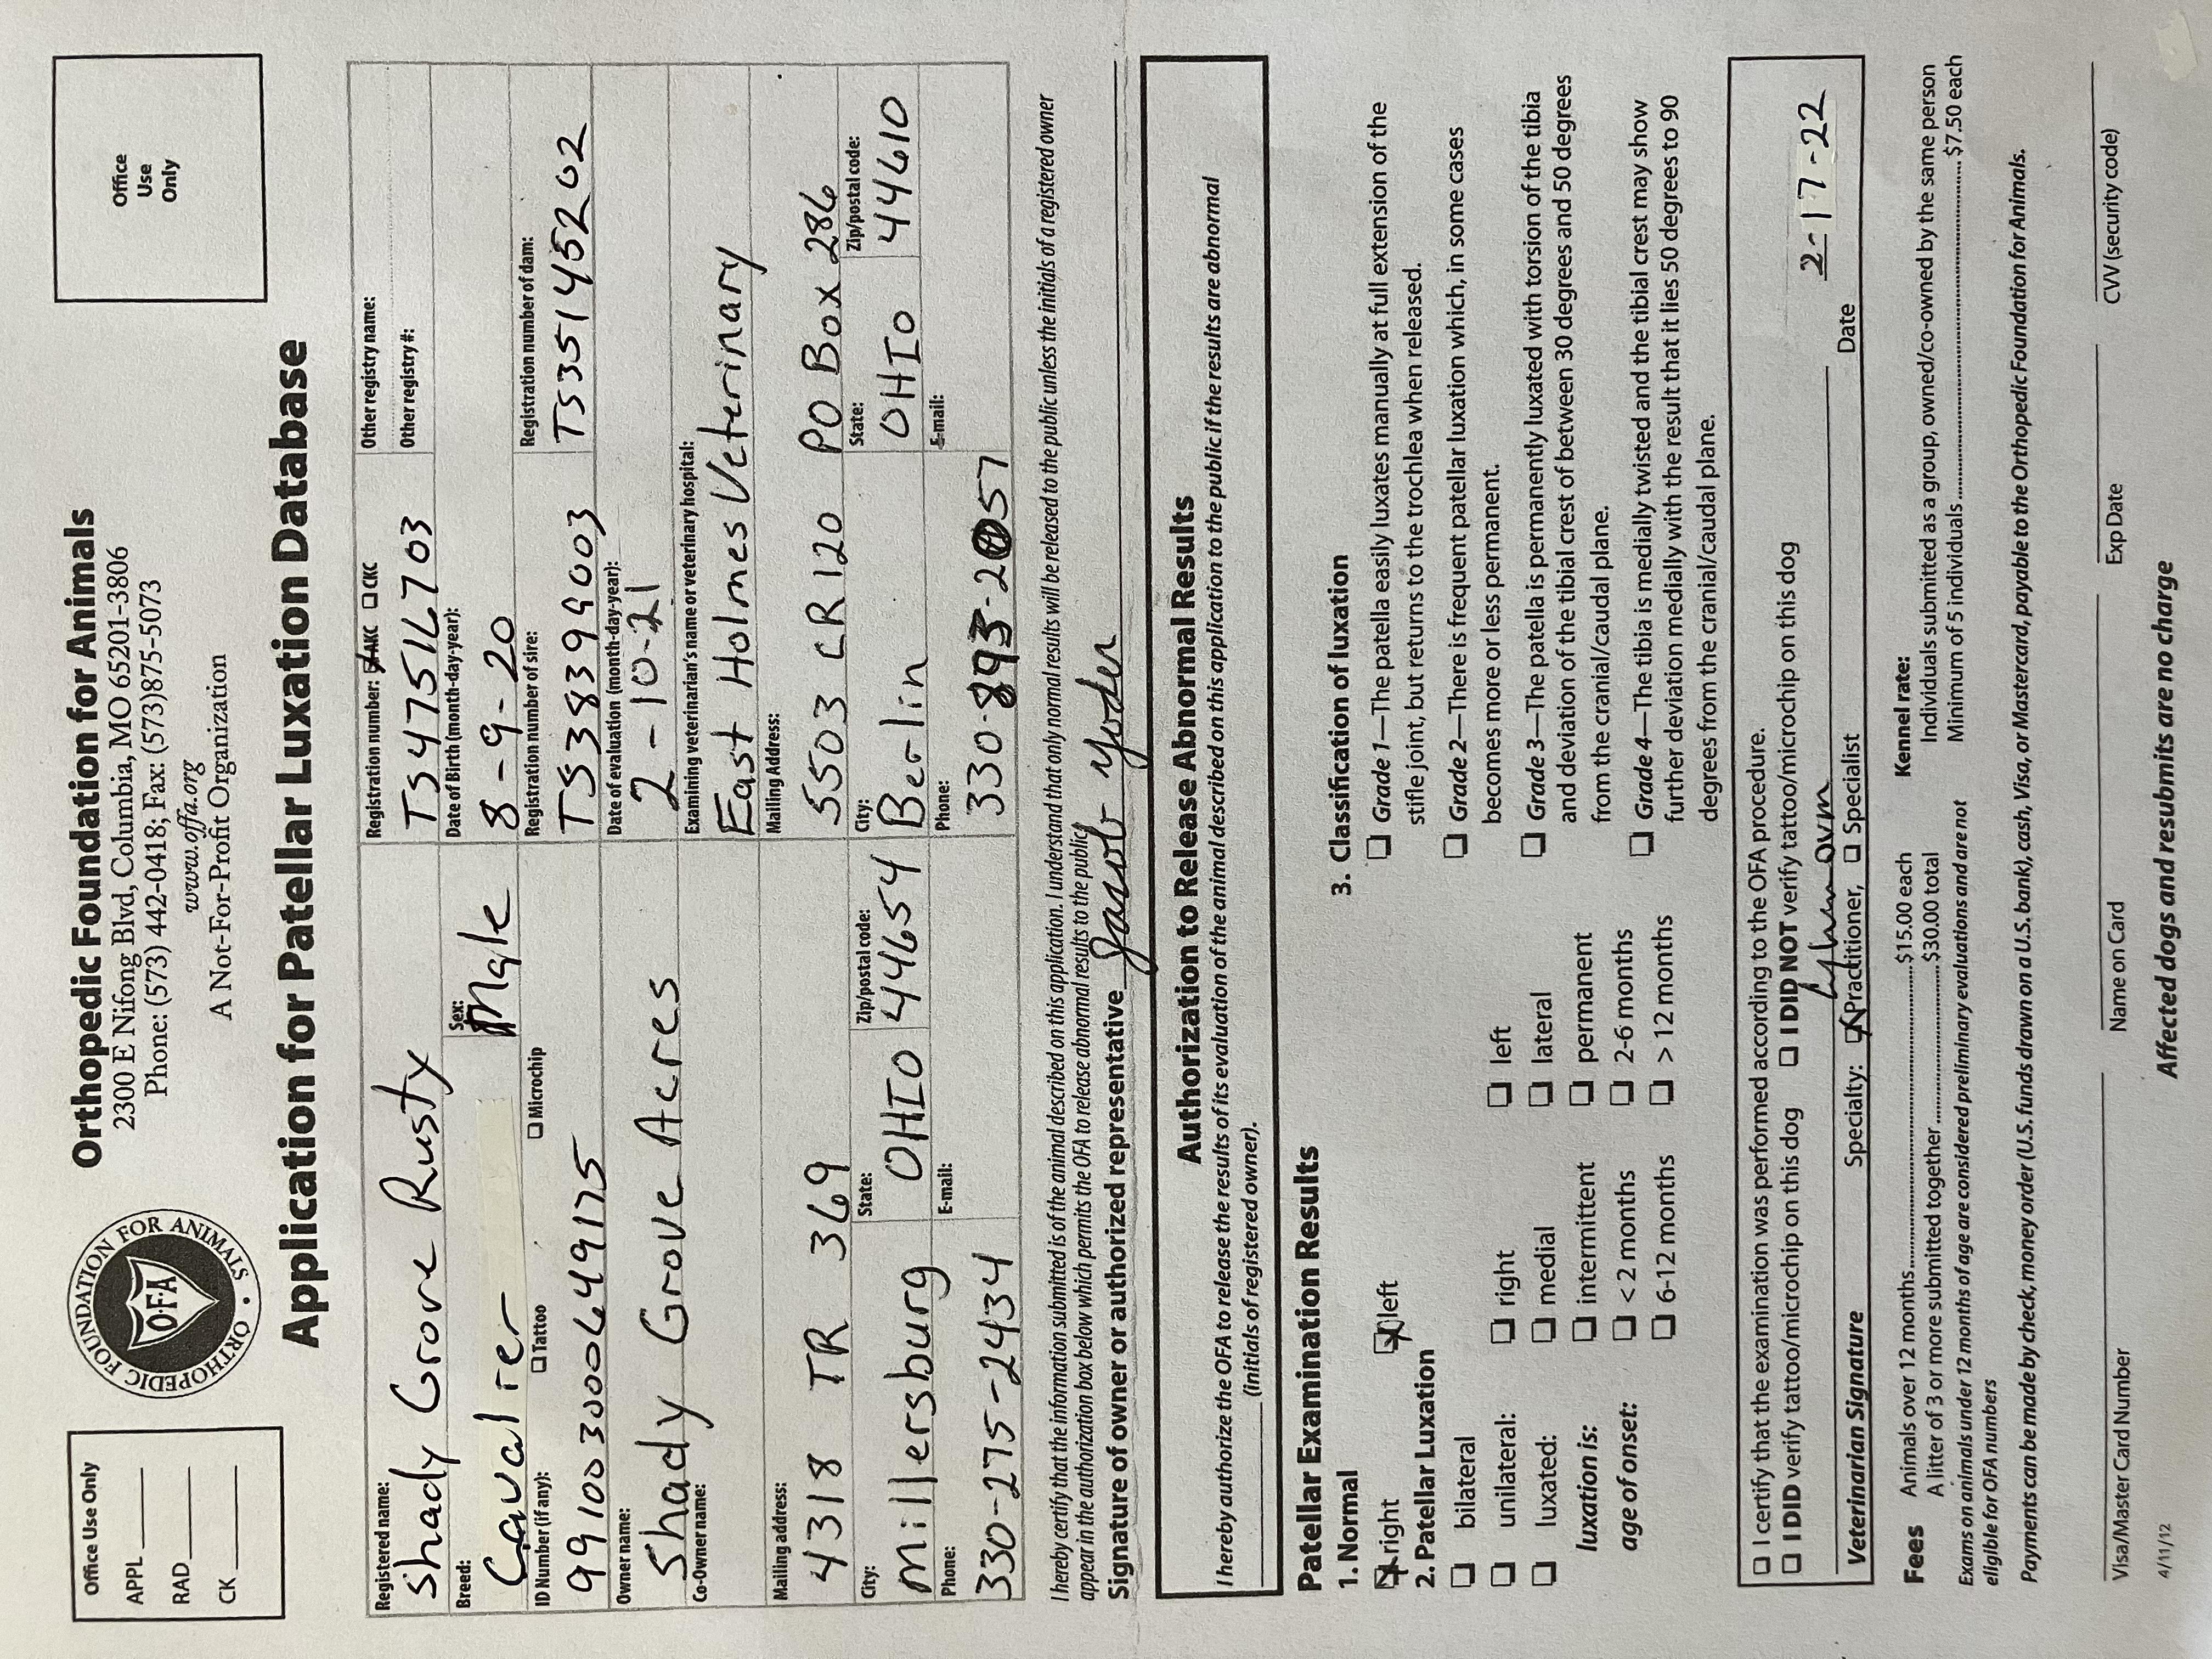 Office Use Only
APPL
RAD
CK
ORTHOPEDIC FOUNDATION FOR ANIMALS
OFA
Orthopedic Foundation for Animals
2300 E Nifong Blvd, Columbia, MO 65201-3806
Phone: (573) 442-0418; Fax: (573)875-5073
www.offa.org
A Not-For-Profit Organization
Office
Use
Only
Application for Patellar Luxation Database
Registered name:
Shady Grove Rusty
Registration number: AKC CKC
TS47516703
Other registry name:
Other registry #:
Breed:
Cavalier
Sex:
Male
Date of Birth (month-day-year):
8-9-20
ID Number (if any): Tattoo Microchip
991003000649175
Registration number of sire:
TS38399003
Registration number of dam:
TS35145202
Owner name:
Shady Grove Acres
Date of evaluation (month-day-year):
2-10-21
Co-Owner name:
Examining veterinarian's name or veterinary hospital:
East Holmes Veterinary
Mailing address:
4318 TR 369
Mailing Address:
5503 CR 120 PO Box 286
City:
Millersburg
State:
OHIO
Zip/postal code:
44654
City:
Berlin
State:
OHIO
Zip/postal code:
44610
Phone:
330-275-2434
E-mail:
Phone:
330-893-2057
E-mail:
I hereby certify that the information submitted is of the animal described on this application. I understand that only normal results will be released to the public unless the initials of a registered owner
appear in the authorization box below which permits the OFA to release abnormal results to the public.
Signature of owner or authorized representative Jacob Yoder
Authorization to Release Abnormal Results
I hereby authorize the OFA to release the results of its evaluation of the animal described on this application to the public if the results are abnormal
(initials of registered owner).
Patellar Examination Results
1. Normal
right left
2. Patellar Luxation
bilateral
unilateral: right left
luxated: medial lateral
luxation is: intermittent permanent
age of onset: < 2 months 2-6 months
6-12 months > 12 months
3. Classification of luxation
Grade 1—The patella easily luxates manually at full extension of the
stifle joint, but returns to the trochlea when released.
Grade 2—There is frequent patellar luxation which, in some cases
becomes more or less permanent.
Grade 3—The patella is permanently luxated with torsion of the tibia
and deviation of the tibial crest of between 30 degrees and 50 degrees
from the cranial/caudal plane.
Grade 4—The tibia is medially twisted and the tibial crest may show
further deviation medially with the result that it lies 50 degrees to 90
degrees from the cranial/caudal plane.
I certify that the examination was performed according to the OFA procedure.
I DID verify tattoo/microchip on this dog I DID NOT verify tattoo/microchip on this dog
2-17-22
Veterinarian Signature Specialty: Practitioner, Specialist Date
Fees Animals over 12 months $15.00 each
A litter of 3 or more submitted together $30.00 total
Exams on animals under 12 months of age are considered preliminary evaluations and are not
eligible for OFA numbers
Kennel rate:
Individuals submitted as a group, owned/co-owned by the same person
Minimum of 5 individuals $7.50 each
Payments can be made by check, money order (U.S. funds drawn on a U.S. bank), cash, Visa, or Mastercard, payable to the Orthopedic Foundation for Animals.
Visa/Master Card Number Name on Card Exp Date CVV (security code)
4/11/12
Affected dogs and resubmits are no charge